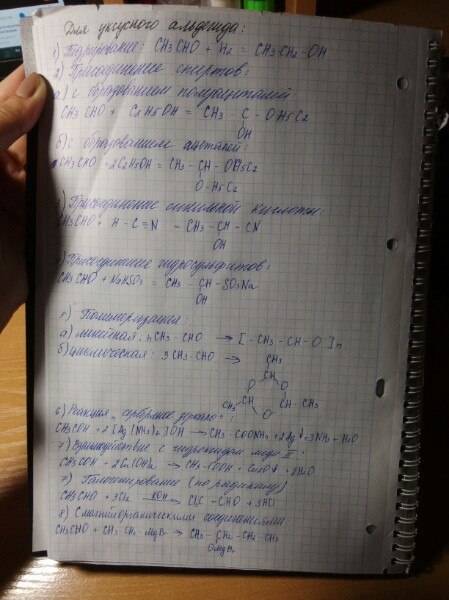 Для уксусного альдегида:
1) Гидрирование: CH3CHO + H2 = CH3-CH2-OH
2) Присоединение спиртов:
а) с образованием полуацеталей
CH3CHO + C2H5OH = CH3 - C - OH5C2
OH
б) с образованием ацеталей:
CH3CHO + 2C2H5OH = CH3 - CH - OH5C2
O-H5C2
) Присоединение синильной кислоты
CH3CHO + H-C≡N - CH3-CH-CN
OH
) Присоединение гидросульфитов:
CH3CHO + NaHSO3 - CH3-CH-SO3Na
OH
) Полимеризация:
а) линейная. nCH3-CHO → [-CH3-CH-O]n
б) циклическая: 3CH3-CHO →
CH3
CH
O O
CH3-CH CH-CH3
O
6) Реакция "серебряное зеркало":
CH3COH + 2[Ag(NH3)2]OH → CH3-COONH4 + 2Ag↓ + 3NH3 + H2O
7) Взаимодействие с гидроксидом меди II:
CH3COH + 2Cu(OH)2 → CH3-COOH + 2H2O
7) Галогенирование (по радикалу)
CH3CHO + 3Cl2 → CCl3-CHO + 3HCl
8) С магнийорганическими соединениями
CH3CHO + CH3-CH2-MgBr → CH3-CH2-CH2-CH3
OMgBr